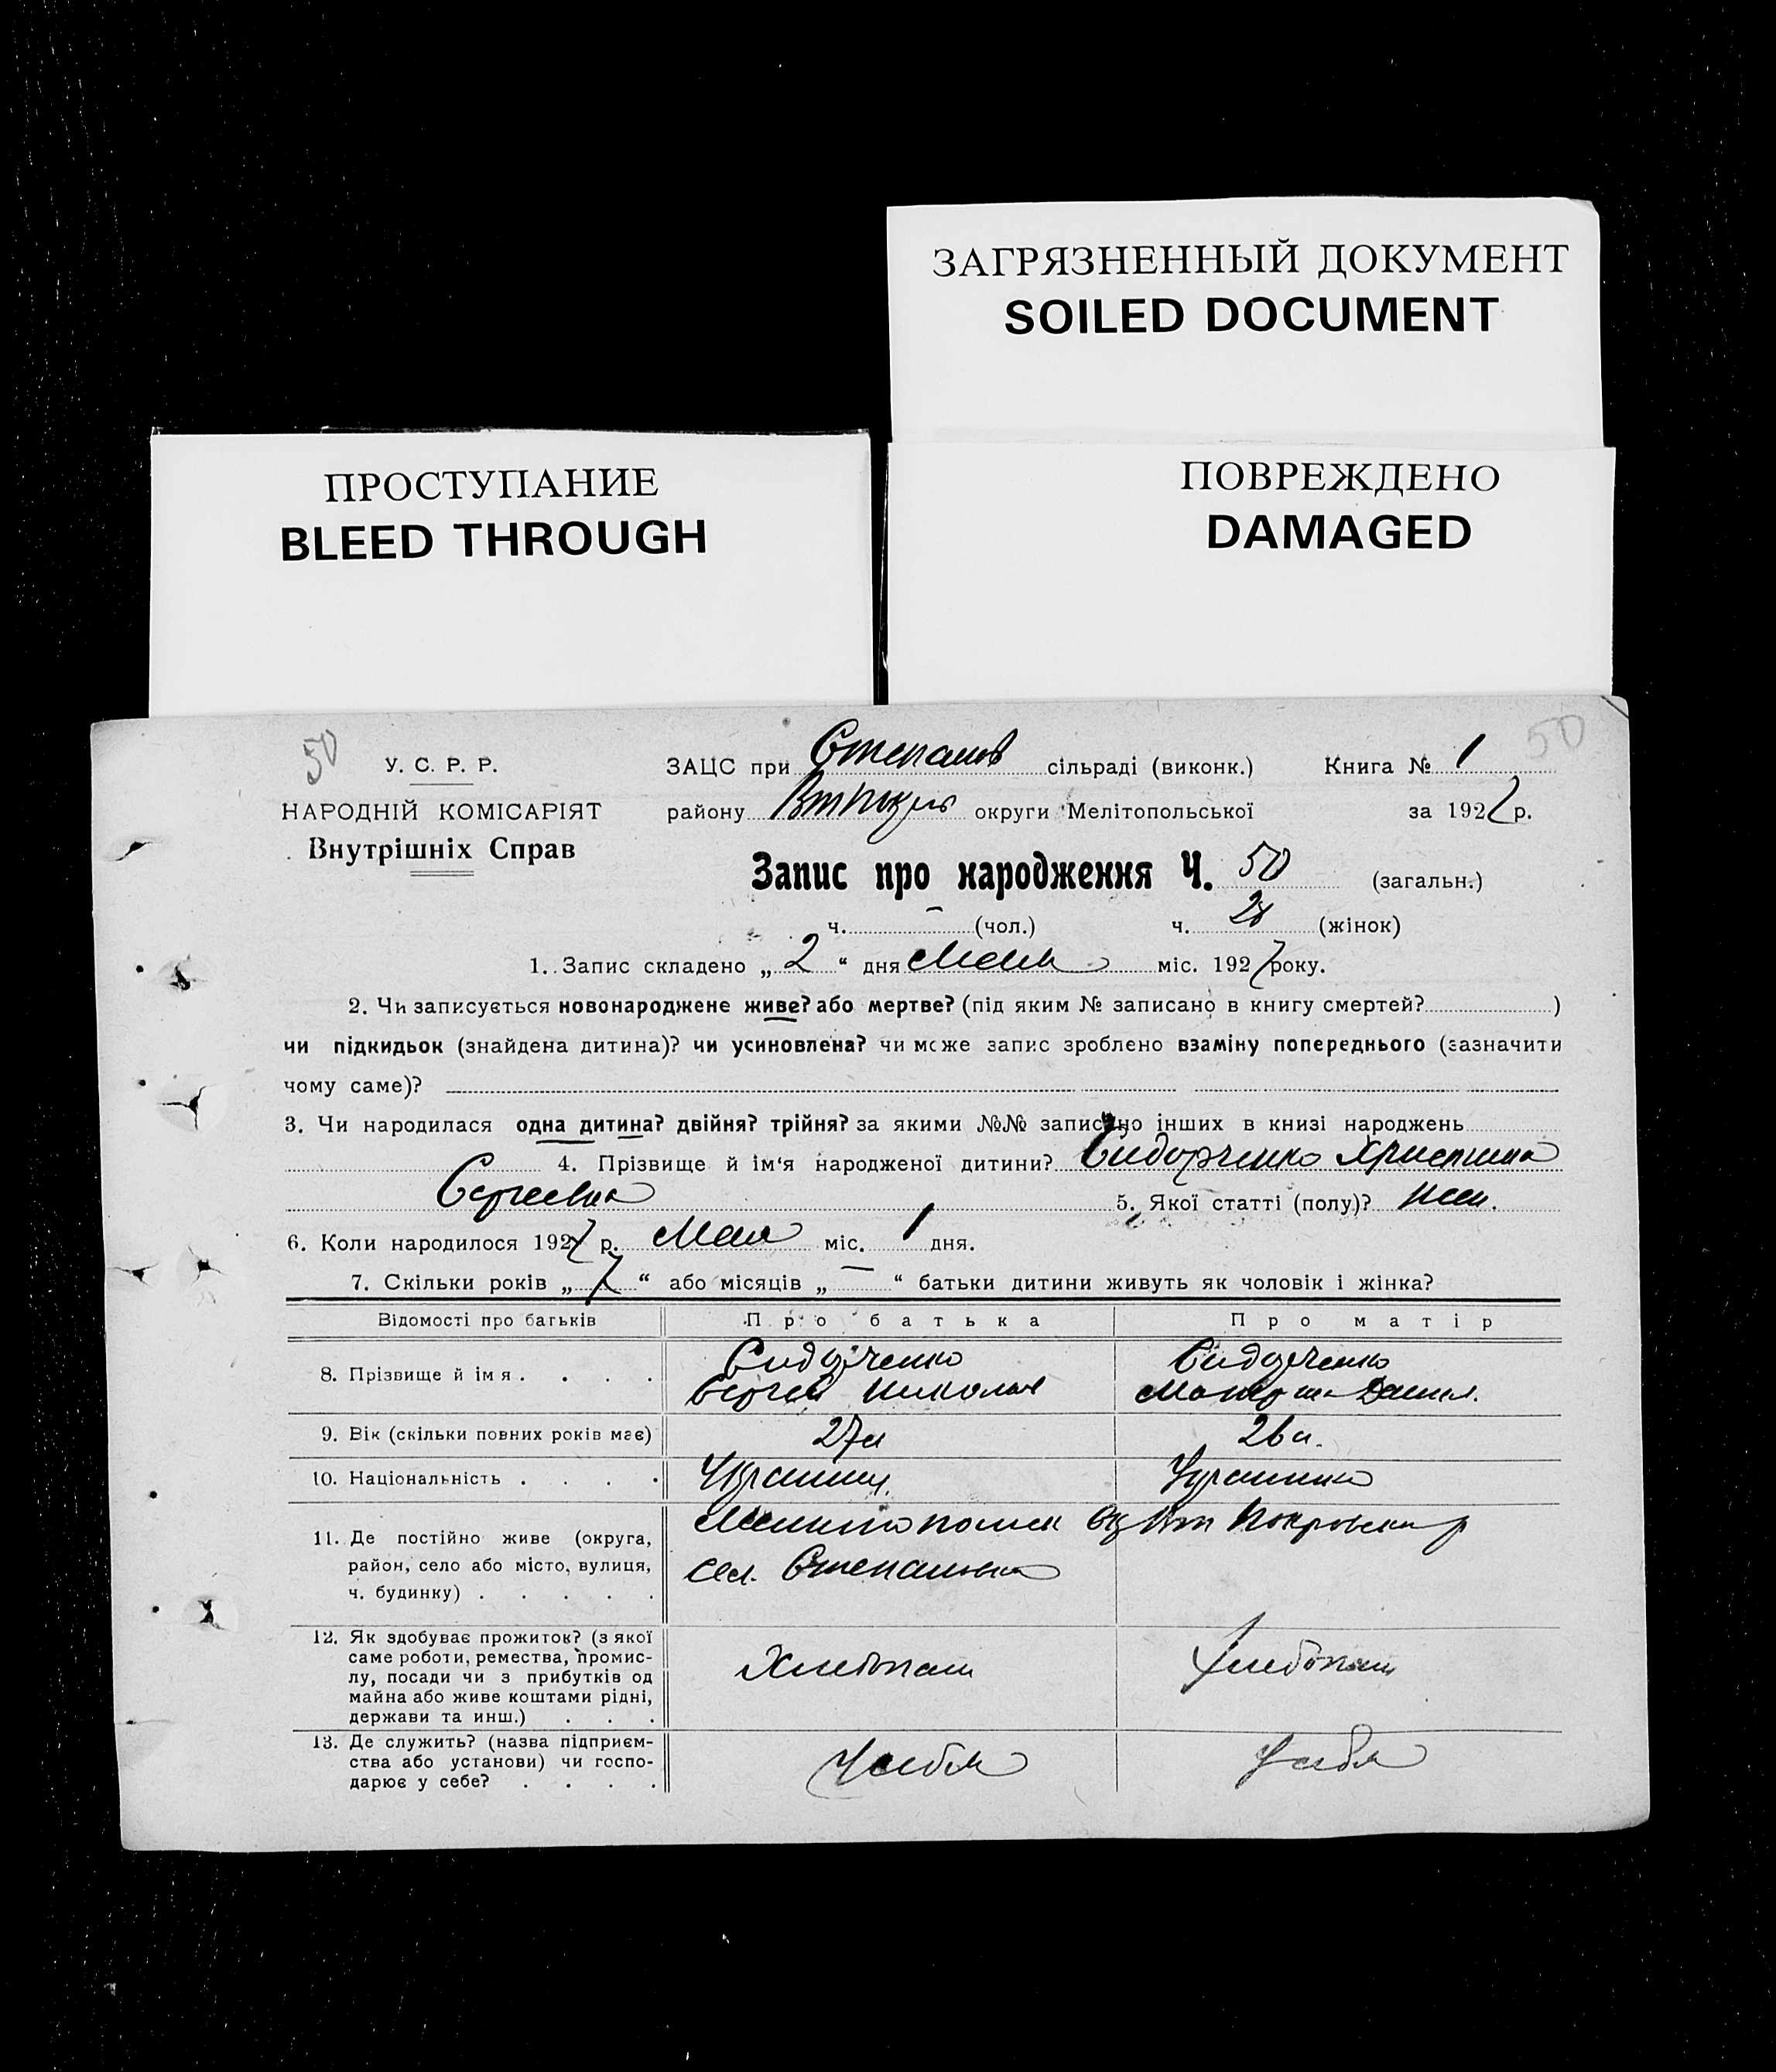 ЗАГРЯЗНЕННЫЙ ДОКУМЕНТ
SOILED DOCUMENT
ПРОСТУПАНИЕ
BLEED THROUGH
ПОВРЕЖДЕНО
DAMAGED
50
50
У. С. Р. Р.
НАРОДНІЙ КОМІСАРІЯТ
Внутрішніх Справ
ЗАЦС при Степанов сільраді (виконк.) Книга № 1
району округи Мелітопольської за 1927 р.
Запис про народження Ч. 50 (загальн.)
ч. - (чол.) ч. (жінок)
1. Запис складено „ 2 “ дня Мая міс. 1927 року.
2. Чи записується новонароджене живе? або мертве? (під яким № записано в книгу смертей? )
чи підкидьок (знайдена дитина)? чи усиновлена? чи може запис зроблено взаміну попереднього (зазначити
чому саме)?
3. Чи народилася одна дитина? двійня? трійня? за якими №№ записано інших в книзі народжень
4. Прізвище й ім‘я народженої дитини? Сидорченко Христина
Сергеевна 5. Якої статті (полу)? жен.
6. Коли народилося 1927 р. Мая міс. 1 дня.
7. Скільки років „ 7 “ або місяців „ — “ батьки дитини живуть як чоловік і жінка?
Відомості про батьків Про батька Про матір
8. Прізвище й імя . . . . Сидорченко Сидорченко
Сергей Николаев Данил.
9. Вік (скільки повних років має) 27л 26л.
10. Національність . . . . Украинец. Украинка
11. Де постійно живе (округа,
район, село або місто, вулиця,
ч. будинку) . . . . .
Мелитопольск Покровск р
сел. Степановка
12. Як здобуває прожиток? (з якої
саме роботи, ремества, промис-
лу, посади чи з прибутків од
майна або живе коштами рідні,
держави та инш.) . . .
Хлебопаш Хлебопаш
13. Де служить? (назва підприєм-
ства або установи) чи госпо-
дарює у себе? . . . .
У себя У себя